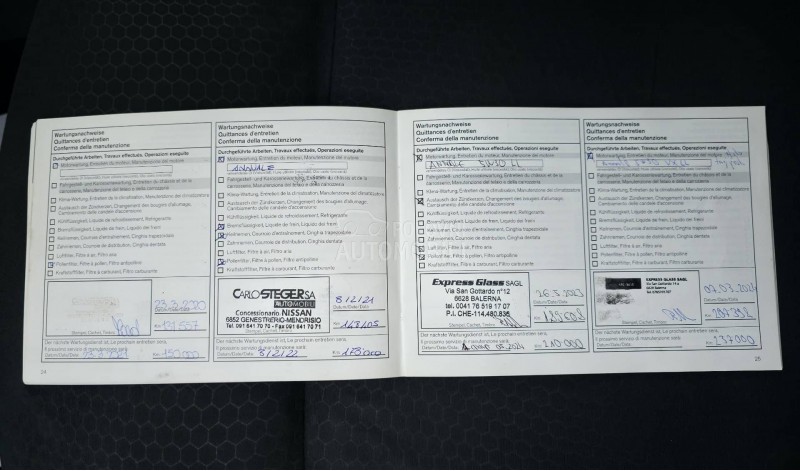 Wartungsnachweise
Quittances d'entretien
Conferma della manutenzione
Durchgeführte Arbeiten, Travaux effectués, Operazioni eseguite
Motorwartung, Entretien du moteur, Manutenzione del motore
Fahrgestell- und Karosseriewartung, Entretien du châssis et de la
carrosserie, Manutenzione del telaio e della carrozzeria
Klima-Wartung, Entretien du climatiseur, Manutenzione del climatizzatore
Austausch der Zündkerzen, Changement des bougies d'allumage,
Cambiamento delle candele d'accensione
Kühlflüssigkeit, Liquide de refroidissement, Refrigerante
Bremsflüssigkeit, Liquide de frein, Liquido dei freni
Keilriemen, Courroie d'entraînement, Cinghia trapezoidale
Zahnriemen, Courroie de distribution, Cinghia dentata
Luftfilter, Filtre à air, Filtro aria
Pollenfilter, Filtre à pollen, Filtro antipolline
Kraftstofffilter, Filtre à carburant, Filtro carburante
23.3.2020
Datum/Date/Data
Km 131.557
Stempel, Cachet, Timbro
Der nächste Wartungsdienst ist, Le prochain entretien sera,
Il prossimo servizio di manutenzione sarà:
Datum/Date/Data 23.3.2021 Km 150.000
24
Wartungsnachweise
Quittances d'entretien
Conferma della manutenzione
Durchgeführte Arbeiten, Travaux effectués, Operazioni eseguite
Motorwartung, Entretien du moteur, Manutenzione del motore
ANNUALE
Fahrgestell- und Karosseriewartung, Entretien du châssis et de la
carrosserie, Manutenzione del telaio e della carrozzeria
Klima-Wartung, Entretien du climatiseur, Manutenzione del climatizzatore
Austausch der Zündkerzen, Changement des bougies d'allumage,
Cambiamento delle candele d'accensione
Kühlflüssigkeit, Liquide de refroidissement, Refrigerante
Bremsflüssigkeit, Liquide de frein, Liquido dei freni
Keilriemen, Courroie d'entraînement, Cinghia trapezoidale
Zahnriemen, Courroie de distribution, Cinghia dentata
Luftfilter, Filtre à air, Filtro aria
Pollenfilter, Filtre à pollen, Filtro antipolline
Kraftstofffilter, Filtre à carburant, Filtro carburante
CARLO STEGER SA
AUTOMOBILI
Concessionario NISSAN
6852 GENESTRERIO-MENDRISIO
Tel. 091 641 70 70 - Fax 091 641 70 71
8/2/21
Datum/Date/Data
Km 148.105
Stempel, Cachet, Timbro
Der nächste Wartungsdienst ist, Le prochain entretien sera,
Il prossimo servizio di manutenzione sarà:
Datum/Date/Data 8/2/22 Km 178.000
Wartungsnachweise
Quittances d'entretien
Conferma della manutenzione
Durchgeführte Arbeiten, Travaux effectués, Operazioni eseguite
Motorwartung, Entretien du moteur, Manutenzione del motore
Fahrgestell- und Karosseriewartung, Entretien du châssis et de la
carrosserie, Manutenzione del telaio e della carrozzeria
Klima-Wartung, Entretien du climatiseur, Manutenzione del climatizzatore
Austausch der Zündkerzen, Changement des bougies d'allumage,
Cambiamento delle candele d'accensione
Kühlflüssigkeit, Liquide de refroidissement, Refrigerante
Bremsflüssigkeit, Liquide de frein, Liquido dei freni
Keilriemen, Courroie d'entraînement, Cinghia trapezoidale
Zahnriemen, Courroie de distribution, Cinghia dentata
Luftfilter, Filtre à air, Filtro aria
Pollenfilter, Filtre à pollen, Filtro antipolline
Kraftstofffilter, Filtre à carburant, Filtro carburante
Express Glass SAGL
Via San Gottardo n°12
6828 BALERNA
tel. 0041 76 519 17 07
P.I. CHE-114,480,835
26.3.2023
Datum/Date/Data
Km
Stempel, Cachet, Timbro
Der nächste Wartungsdienst ist, Le prochain entretien sera,
Il prossimo servizio di manutenzione sarà:
Datum/Date/Data Km 210.000
Wartungsnachweise
Quittances d'entretien
Conferma della manutenzione
Durchgeführte Arbeiten, Travaux effectués, Operazioni eseguite
Motorwartung, Entretien du moteur, Manutenzione del motore
Fahrgestell- und Karosseriewartung, Entretien du châssis et de la
carrosserie, Manutenzione del telaio e della carrozzeria
Klima-Wartung, Entretien du climatiseur, Manutenzione del climatizzatore
Austausch der Zündkerzen, Changement des bougies d'allumage,
Cambiamento delle candele d'accensione
Kühlflüssigkeit, Liquide de refroidissement, Refrigerante
Bremsflüssigkeit, Liquide de frein, Liquido dei freni
Keilriemen, Courroie d'entraînement, Cinghia trapezoidale
Zahnriemen, Courroie de distribution, Cinghia dentata
Luftfilter, Filtre à air, Filtro aria
Pollenfilter, Filtre à pollen, Filtro antipolline
Kraftstofffilter, Filtre à carburant, Filtro carburante
EXPRESS GLASS SAGL
Datum/Date/Data
Km
Stempel, Cachet, Timbro
Der nächste Wartungsdienst ist, Le prochain entretien sera,
Il prossimo servizio di manutenzione sarà:
Datum/Date/Data Km 237.000
25